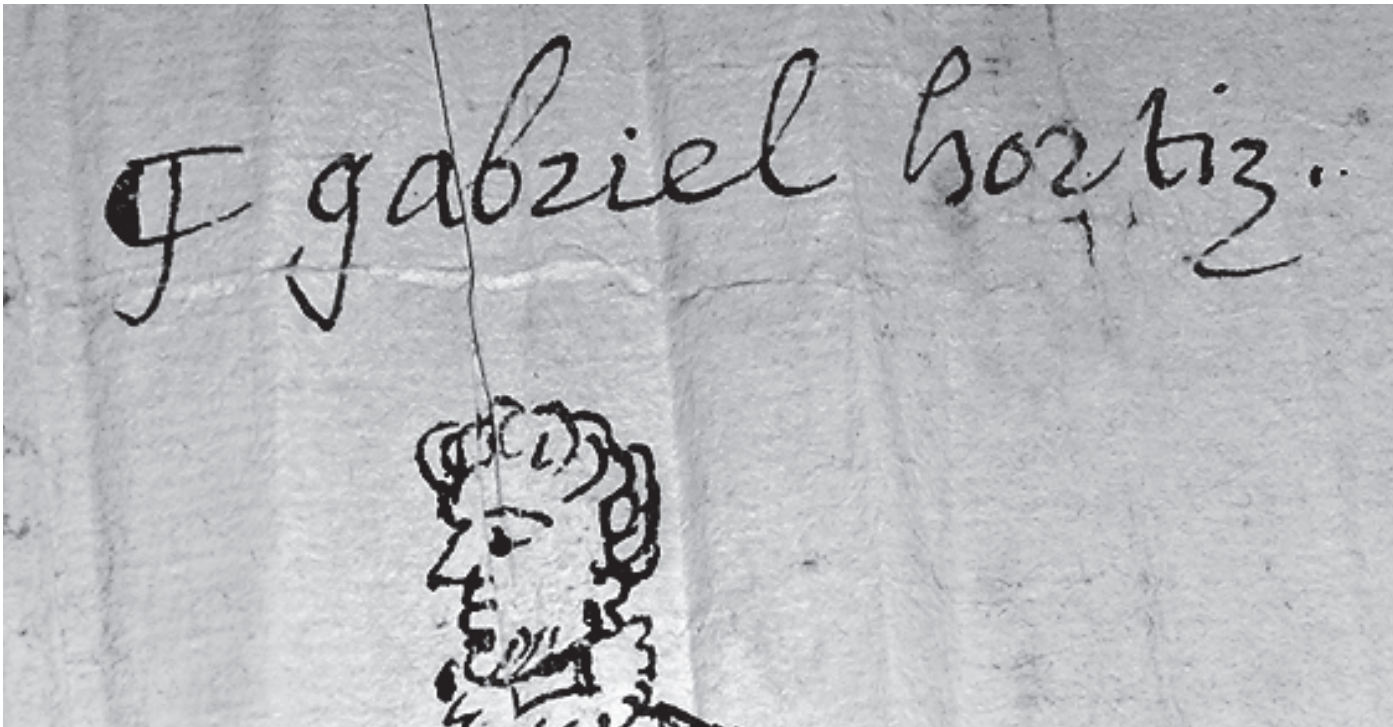 ¶ gabriel hortiz..